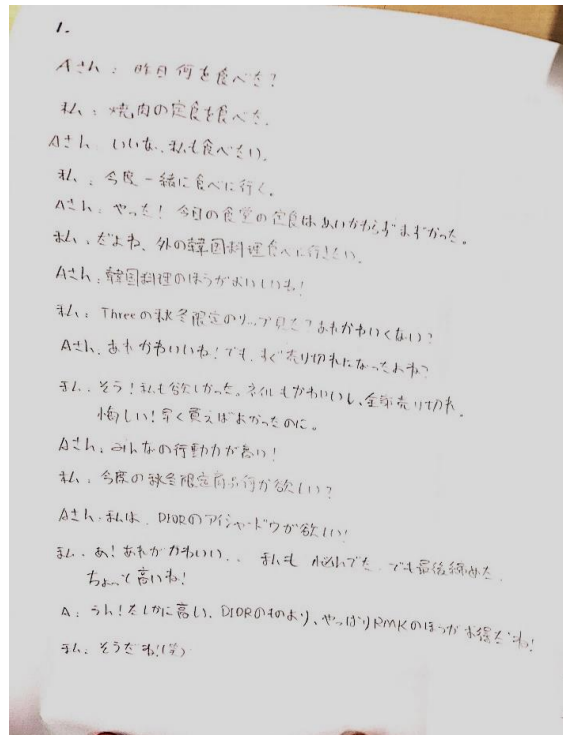 1.
Aさん: 昨日何を食べた?
私: 焼肉の定食を食べた。
Aさん: いいな、私も食べたい。
私: 今度一緒に食べに行く。
Aさん: やった! 今日の食堂の定食はあいかわらずまずかった。
私: だよね、外の韓国料理食べに行きたい。
Aさん: 韓国料理のほうがおいしいね!
私: Threeの秋冬限定のリップ見た?あれかわいくない?
Aさん: あれかわいいね!でも、すぐ売り切れになったよね?
私: そう!私も欲しかった。ネイルもかわいいし、全部売り切れ。
悔しい!早く買えばよかったのに。
Aさん: みんなの行動力が高い!
私: 今度の秋冬限定商品何が欲しい?
Aさん: 私は、DIORのアイシャードウが欲しい!
私: あ!あれがかわいい.. 私も 悩んでた。でも最後諦めた。
ちょっと高いね!
A: うん!たしかに高い、DIORのものより、やっぱりRMKのほうがお得だね!
私: そうだね!(笑)